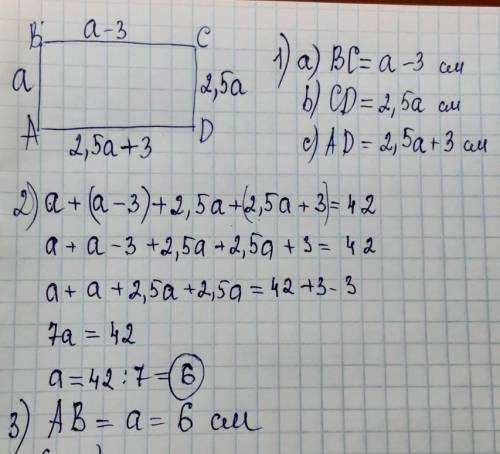 B a-3 C
a 2,5a
A D
2,5a+3
1) a) BC = a - 3 см
b) CD = 2,5a см
c) AD = 2,5a + 3 см
2) a + (a-3) + 2,5a + (2,5a + 3) = 42
a + a - 3 + 2,5a + 2,5a + 3 = 42
a + a + 2,5a + 2,5a = 42 + 3 - 3
7a = 42
a = 42 : 7 = 6
3) AB = a = 6 см